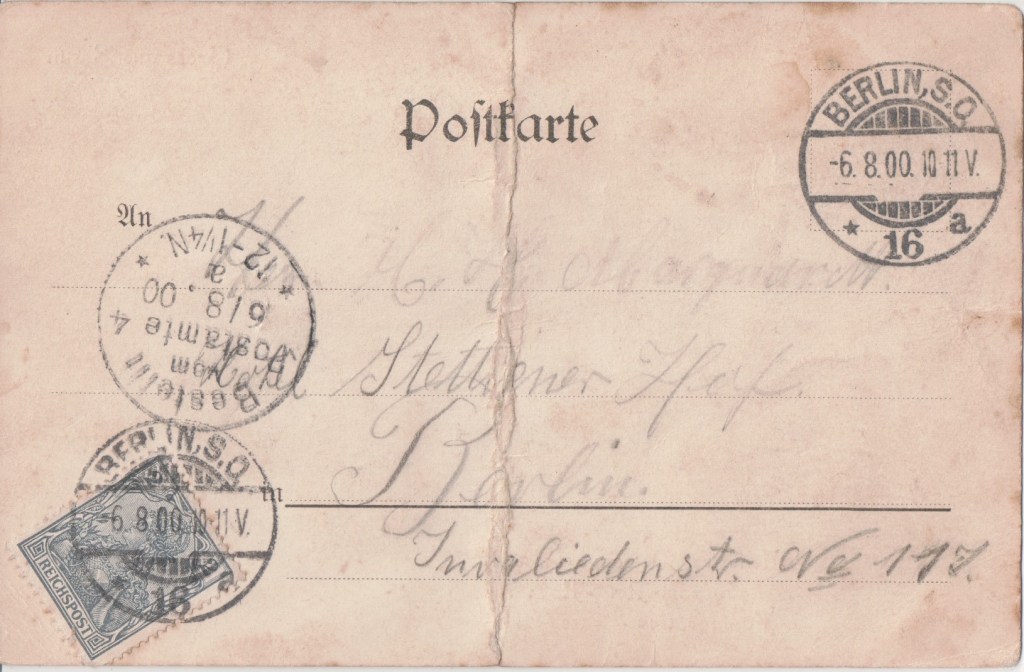 Postkarte
BERLIN, S.O.
-6. 8. 00. 10-11 V.
* 16 a
An
H. H. Marquardt.
Hotel Stettiener Hof.
Berlin.
in
Invaliedenstr. No 117.
Bestellt
vom
Postamte 4
6/8. 00
a
12-1¼N.
* *
BERLIN, S.O.
-6. 8. 00. 10-11 V.
* 16 a
REICHSPOST